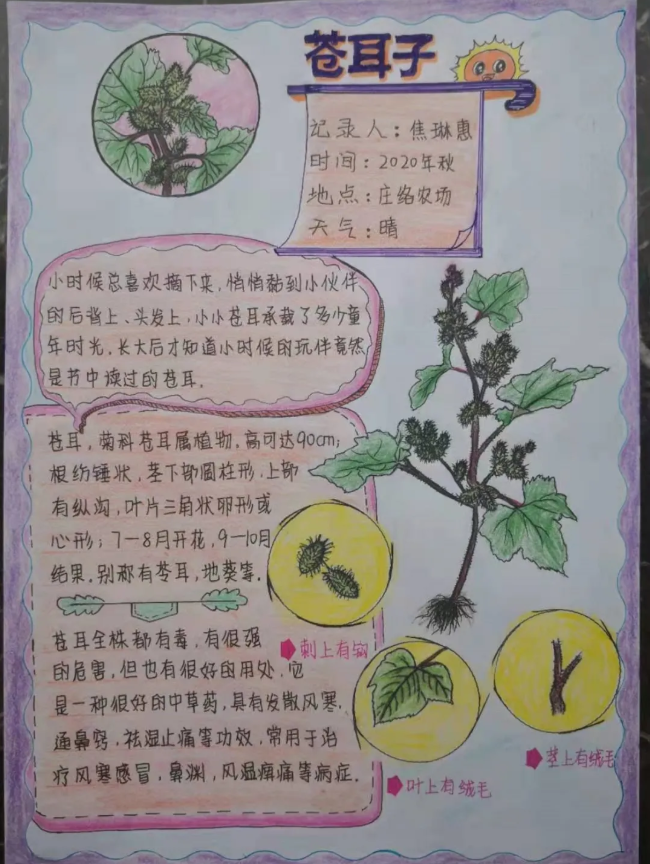 苍耳子
记录人：焦琳惠
时间：2020年秋
地点：庄络农场
天气：晴
小时候总喜欢摘下来，悄悄黏到小伙伴
的后背上、头发上，小小苍耳承载了多少童
年时光，长大后才知道小时候的玩伴竟然
是书中读过的苍耳．
苍耳，菊科苍耳属植物，高可达90cm；
根纺锤状，茎下部圆柱形，上部
有纵沟，叶片三角状卵形或
心形；7一8月开花，9一10月
结果．别称有苓耳，地葵等．
苍耳全株都有毒，有很强
的危害，但也有很好的用处．它
是一种很好的中草药，具有发散风寒，
通鼻窍，祛湿止痛等功效，常用于治
疗风寒感冒，鼻渊，风湿痹痛等病症．
刺上有钩
茎上有绒毛
叶上有绒毛